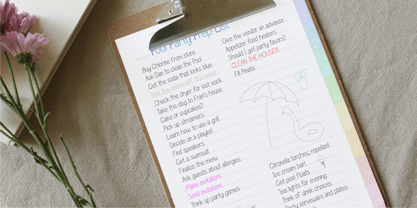 Pool Party Prep List
Buy Chlorine From store.
Ask Dan to clean the Pool
Get the soda that looks blue
Pick the onions off the salad
Check the dryer for lost sock
Take the dog to Fran's house
Cake or cupcakes?
Pick up streamers
Learn how to use a grill
Decide on a playlist
Find speakers
Get a swimsuit
Finalize the menu
Ask guests about allergies
Make invitations
Send invitations
Think up party games
Give the vendor an advance
Appetizer food heaters
Should I get party favors?
CLEAN THE HOUSE
Fill Pinata
Citronella torches, repellant
Ice cream bar!
Get pool floats
Tea lights for evening
Think of drink choices
Party serveware and plates